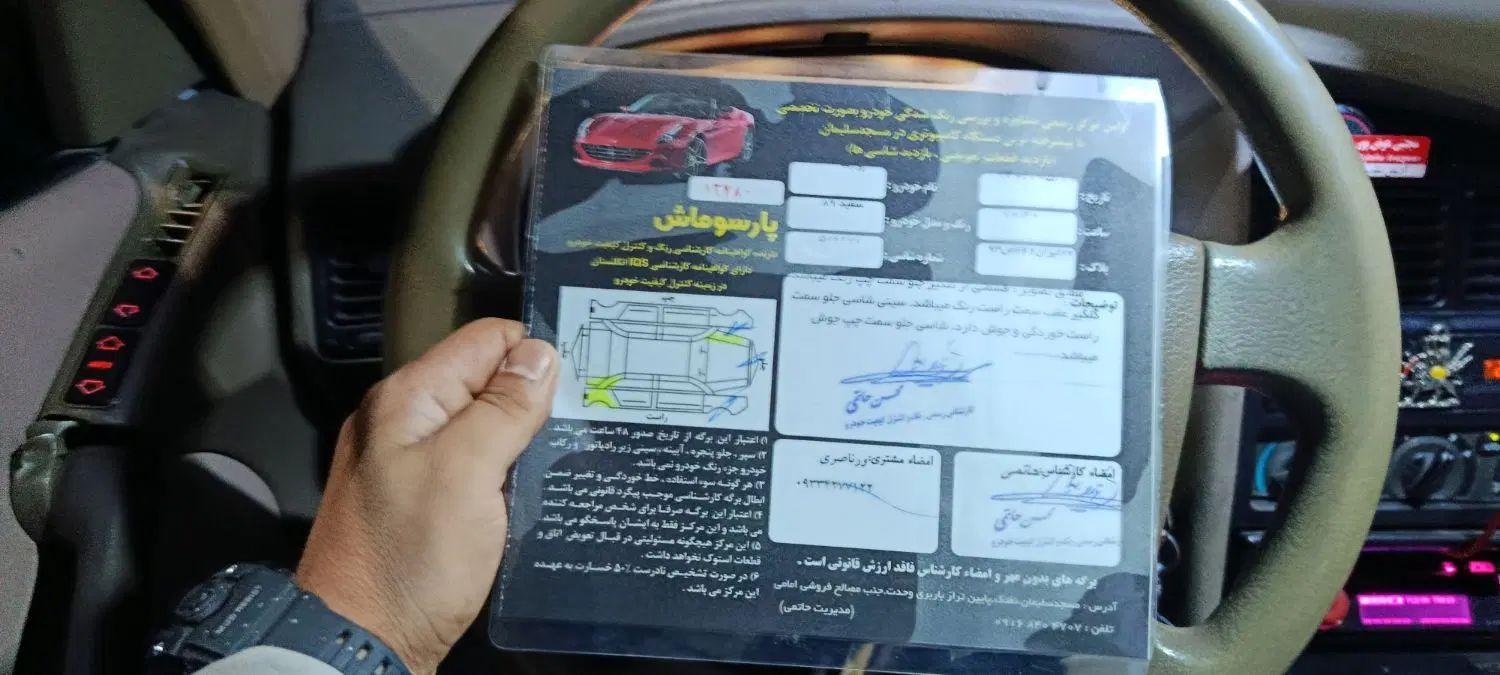 اولین مرکز رسمی مشاوره و بررسی رنگ شدگی خودرو بصورت تخصصی
با پیشرفته ترین دستگاه کامپیوتری در مسجدسلیمان
(بازدید قطعات تعویضی ، بازدید شاسی ها)
تاریخ:
نام خودرو:
۱۳۴۸۰
ساعت:
رنگ و مدل خودرو:
سفید ۸۹
پارسوماش
پلاک:
شماره شاسی:
دارنده گواهینامه کارشناسی رنگ و کنترل کیفیت خودرو
دارای گواهینامه کارشناسی IQS انگلستان
در زمینه کنترل کیفیت خودرو
توضیحات:
گلگیر عقب سمت راست رنگ میباشد. سینی شاسی جلو سمت
راست خوردگی و جوش دارد. شاسی جلو سمت چپ جوش
میباشد
محسن حاتمی
کارشناس رسمی رنگ و کنترل کیفیت خودرو
چپ
راست
۱) اعتبار این برگه از تاریخ صدور ۴۸ ساعت می باشد .
۲) سپر ، جلو پنجره ، آیینه ، سینی زیر رادیاتور و رکاب
خودرو جزء رنگ خودرو نمی باشد.
۳) هر گونه سوء استفاده ، خط خوردگی و تغییر ضمن
ابطال برگه کارشناسی موجب پیگرد قانونی می باشد .
۴) اعتبار این برگه صرفا برای شخص مراجعه کننده
می باشد و این مرکز فقط به ایشان پاسخگو می باشد.
۵) این مرکز هیچگونه مسئولیتی در قبال تعویض اتاق و
قطعات استوک نخواهد داشت .
۶) در صورت تشخیص نادرست ۵۰٪ خسارت به عهده
این مرکز می باشد .
امضاء کارشناس: حاتمی
محسن حاتمی
امضاء مشتری: نورناصری
برگه های بدون مهر و امضاء کارشناس فاقد ارزش قانونی است .
آدرس : مسجدسلیمان، نفتک، پایین تر از باربری وحدت، جنب مصالح فروشی امامی
تلفن : ۰۹۱۶ ۸۴۰ ۴۷۰۷
(مدیریت حاتمی)